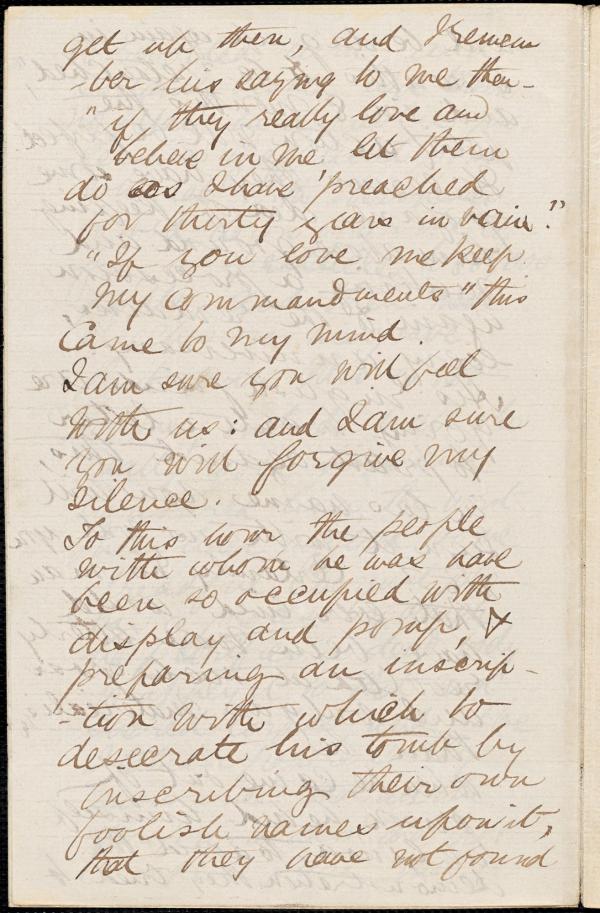 get up then, and I remem
-ber his saying to me then -
"if they really love and
believe in me let them
do as I have preached
for thirty years in vain."
"If you love me keep
my commandments" this
came to my mind.
I am sure you will feel
with us: and I am sure
you will forgive my
silence.
To this hour the people
with whom he was have
been so occupied with
display and pomp, &
preparing an inscrip-
-tion with which to
desecrate his tomb by
inscribing their own
foolish names upon it,
that they have not found